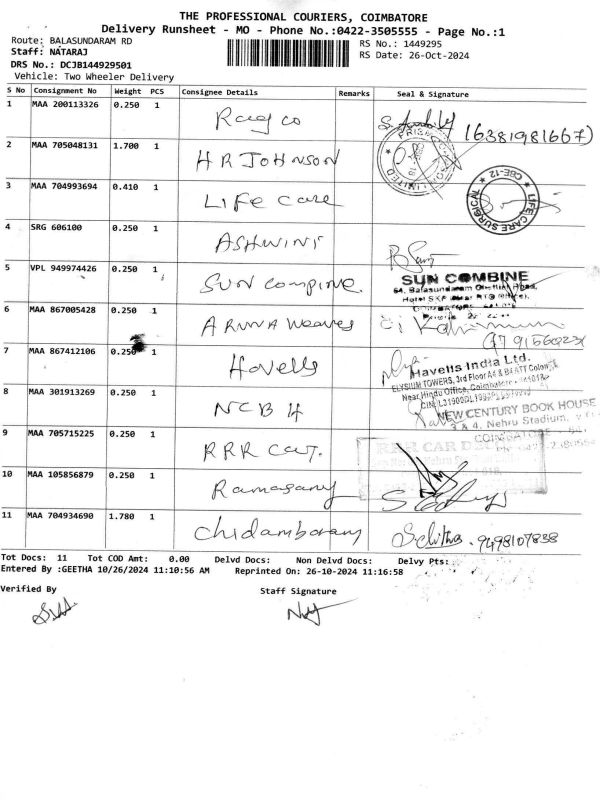 THE PROFESSIONAL COURIERS, COIMBATORE
Delivery Runsheet - MO - Phone No.:0422-3505555 - Page No.:1
Route: BALASUNDARAM RD
RS No.: 1449295
Staff: NATARAJ
RS Date: 26-Oct-2024
DRS No.: DCJB144929501
Vehicle: Two Wheeler Delivery
S No Consignment No Weight PCS Consignee Details Remarks Seal & Signature
1 MAA 200113326 0.250 1 Rayco (6381981667)
2 MAA 705048131 1.700 1 HR JOHNSON
3 MAA 704993694 0.410 1 LIFE Care LIFE CARE SURGICAL CBE-12
4 SRG 606100 0.250 1 ASHWINI
5 VPL 949974426 0.250 1 SUN Compine.
SUN COMBINE
64, Balasundaram Chettiar Road,
6 MAA 867005428 0.250 1 ARUNA Weaves
7 MAA 867412106 0.250 1 Havells
Havells India Ltd.
ELYSIUM TOWERS, 3rd Floor
Near Hindu Office, Coimbatore
8 MAA 301913269 0.250 1 NCBH
NEW CENTURY BOOK HOUSE
& 4, Nehru Stadium,
COIMBATORE
9 MAA 705715225 0.250 1 RRR Car.
10 MAA 105856879 0.250 1 Ramasamy
11 MAA 704934690 1.780 1 Chidambaram 9498107838
Tot Docs: 11 Tot COD Amt: 0.00 Delvd Docs: Non Delvd Docs: Delvy Pts:
Entered By :GEETHA 10/26/2024 11:10:56 AM Reprinted On: 26-10-2024 11:16:58
Verified By Staff Signature